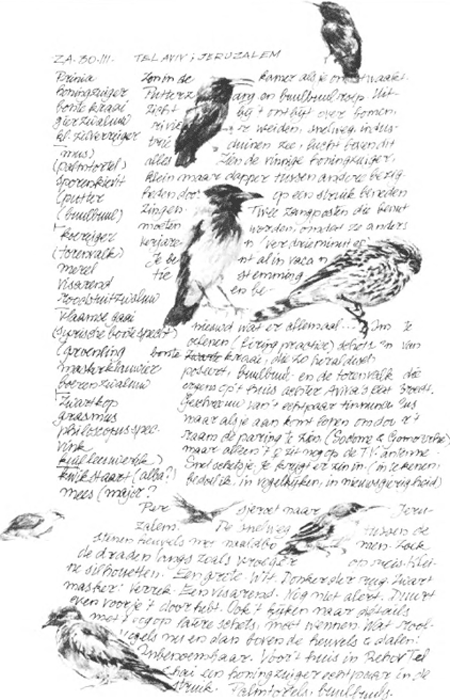 ZA. 30. III. TEL AVIV & JERUZALEM
Prinia
honingzuiger
bonte kraai
gierzwaluw
kl. zilverreiger
mus)
(palmtortel)
sporenkievit
(putter
(buulbuul)
koereiger
(torenvalk)
merel
visarend
roodstuitzwaluw
vlaamse gaai
(syrische bonte specht)
(groenling
maskerklauwier
boerenzwaluw
zwartkop
grasmus
philloscopus spec.
vink
kuifleeuwerik)
kwikstaart (alba?)
mees (major?
Zon in de kamer als je ontwaakt.
zang en buulbuul roep. Uit-
zicht bij 't ontbijt over bomen,
rivier, weiden, snelweg, indus-
trie duinen zee, lucht boven dit
alles. Zien de vinrije honingzuiger,
klein maar dapper tussen andere bezig
heden door op een struik beneden
zingen. Twee zangposten die benut
moeten worden, omdat ze anders
verjaren
Je be nt al in vaca n
tie stemming
en be
nieuwd wat er allemaal... Im 'e
oefenen (firing practice) schots en van
bonte kraai, die zo heraldisch
poseert, buulbuul en de torenvalk die
ergens op 't huis achter Aviva's flat broedt.
Geschreeuw van 't echtpaar tinnunculus
maar als je aan komt loren onder 't
raam de paring te zien (Sodom & Gomorrha)
maar alleen 't ♀ zit nog op de TV-antenne.
Snel schetsje. Je krijgt er zin in (in tekenen
bedoel ik, in vogelkijken, in nieuwsgierigheid)
Per sjeroet naar Jeru-
zalem. De snelweg tussen de
stenen heuvels met naaldbo men. Zoek
de draden langs zoals vroeger op reis klei-
ne silhouetten. Een grote. Wit. Donkerder rug. Zwart
masker: Verrek. Een visarend. Nog niet alert. Duurt
even voor je 't door hebt. Ook 't kijken naar details
moet nog op latere schets, moet wennen. Wat rood-
vogels nu en dan boven de heuvels & dalen:
Onbenoembaar. Voor 't huis in Rehov Tel
Chai een honingzuiger echtpaar in de
struik. Palmtortels. buulbuuls.